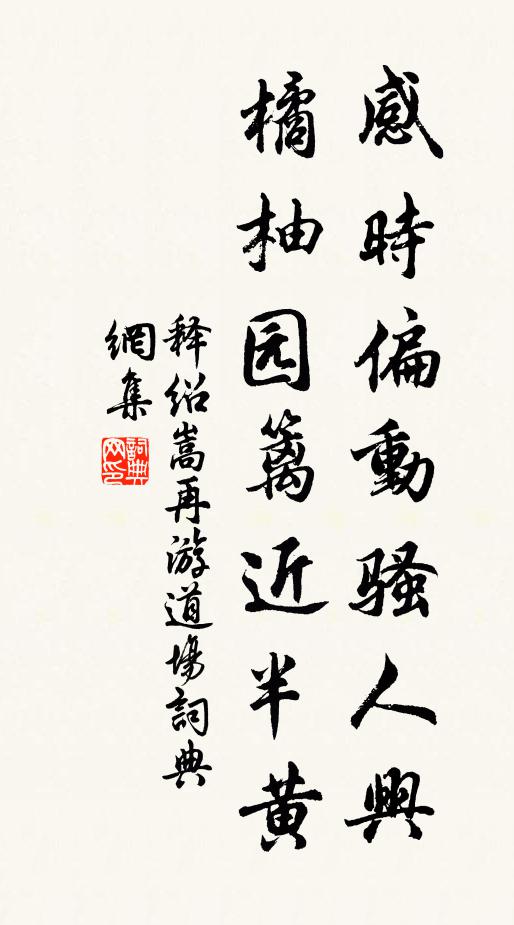 感時偏動骚人興
橘柚园籬近半黄
释绍嵩再游道場詞典
網集
詞典
网印